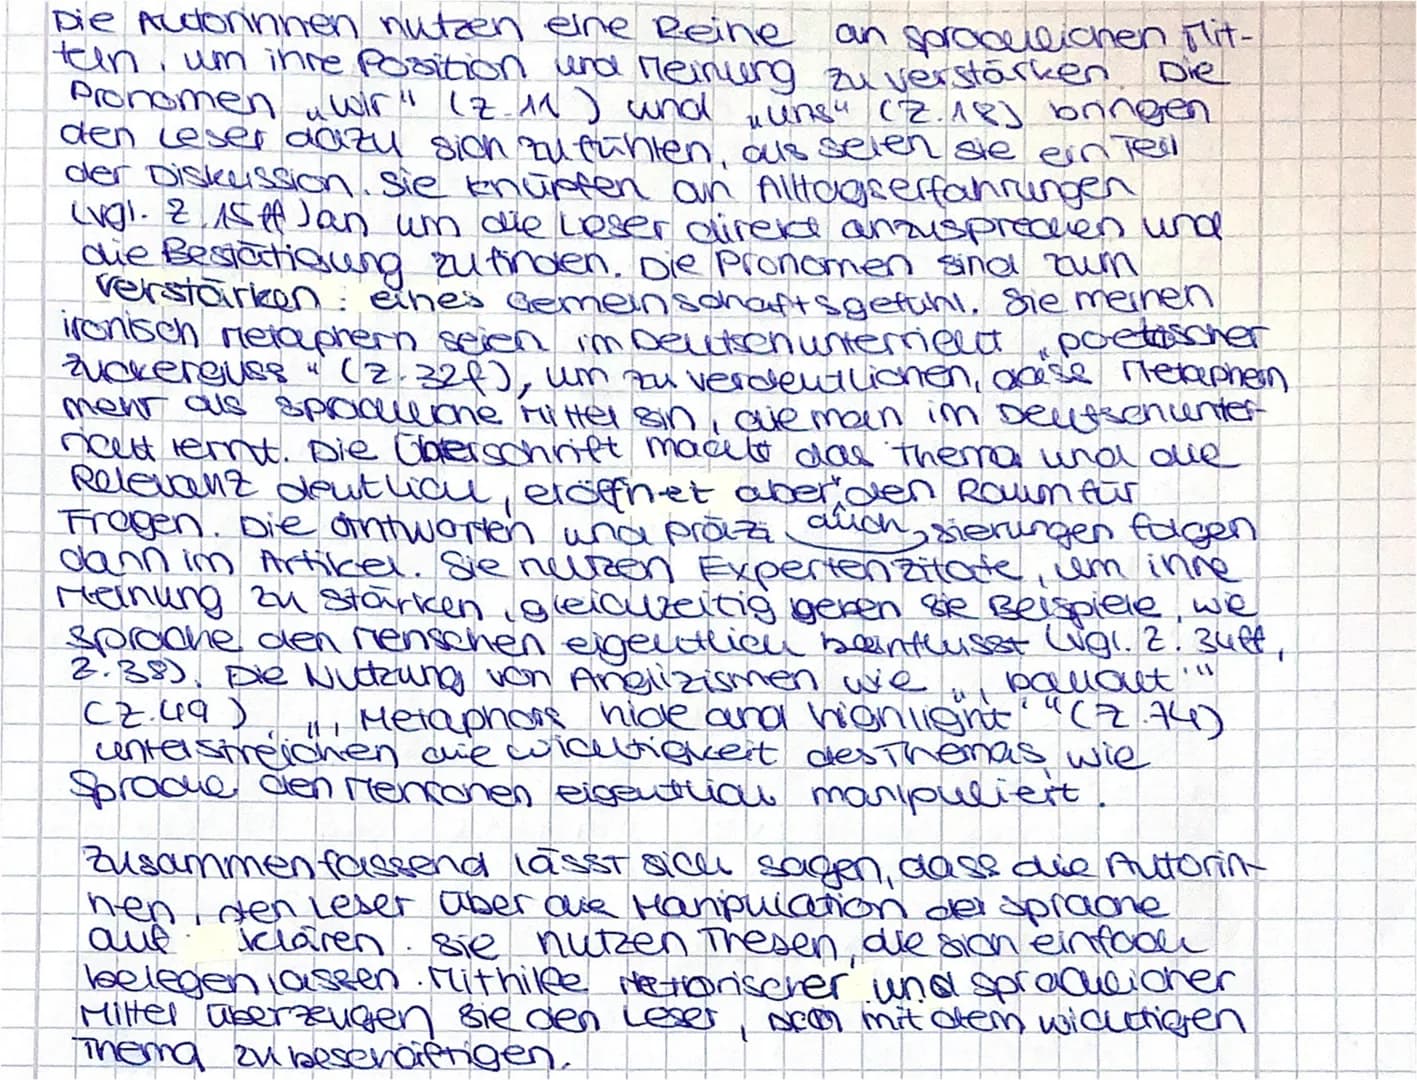 Die Autorinnen nutzen eine Reihe an sprachlichen Mit-
teln, um ihre Position und Meinung zu verstärken. Die
Pronomen „wir" (Z. 11) und „uns" (Z. 18) bringen
den Leser dazu sich zu fühlen, als seien sie ein Teil
der Diskussion. Sie knüpfen an Alltagserfahrungen
(vgl. Z. 15ff) an um die Leser direkt anzusprechen und
die Bestätigung zu finden. Die Pronomen sind zum
verstärken eines Gemeinschaftsgefühl. Sie meinen
ironisch Metaphern seien im Deutschunterricht „poetischer
Zuckerguss" (Z. 32f), um zu verdeutlichen, dass Metaphern
mehr als sprachliche Mittel sin, die man im Deutschunter-
richt lernt. Die Überschrift macht das Thema und die
Relevanz deutlich, eröffnet aber den Raum für
Fragen. Die Antworten und Präzi auch sierungen folgen
dann im Artikel. Sie nutzen Expertenzitate, um ihre
Meinung zu stärken, gleichzeitig geben sie Beispiele, wie
Sprache den Menschen eigentlich beeinflusst (vgl. Z. 34ff,
Z. 38). Die Nutzung von Anglizismen wie „‚
(Z. 49) „‚Metaphors hide and highlight'" (Z. 74)
unterstreichen die Wichtigkeit des Themas, wie
Sprache den Menschen eigentlich manipuliert.
Zusammenfassend lässt sich sagen, dass die Autorin-
nen, den Leser über die Manipulation der Sprache
auf klären. Sie nutzen Thesen, die sich einfach
belegen lassen. Mithilfe rhetorischer und sprachlicher
Mittel überzeugen sie den Leser, sich mit dem wichtigen
Thema zu beschäftigen.